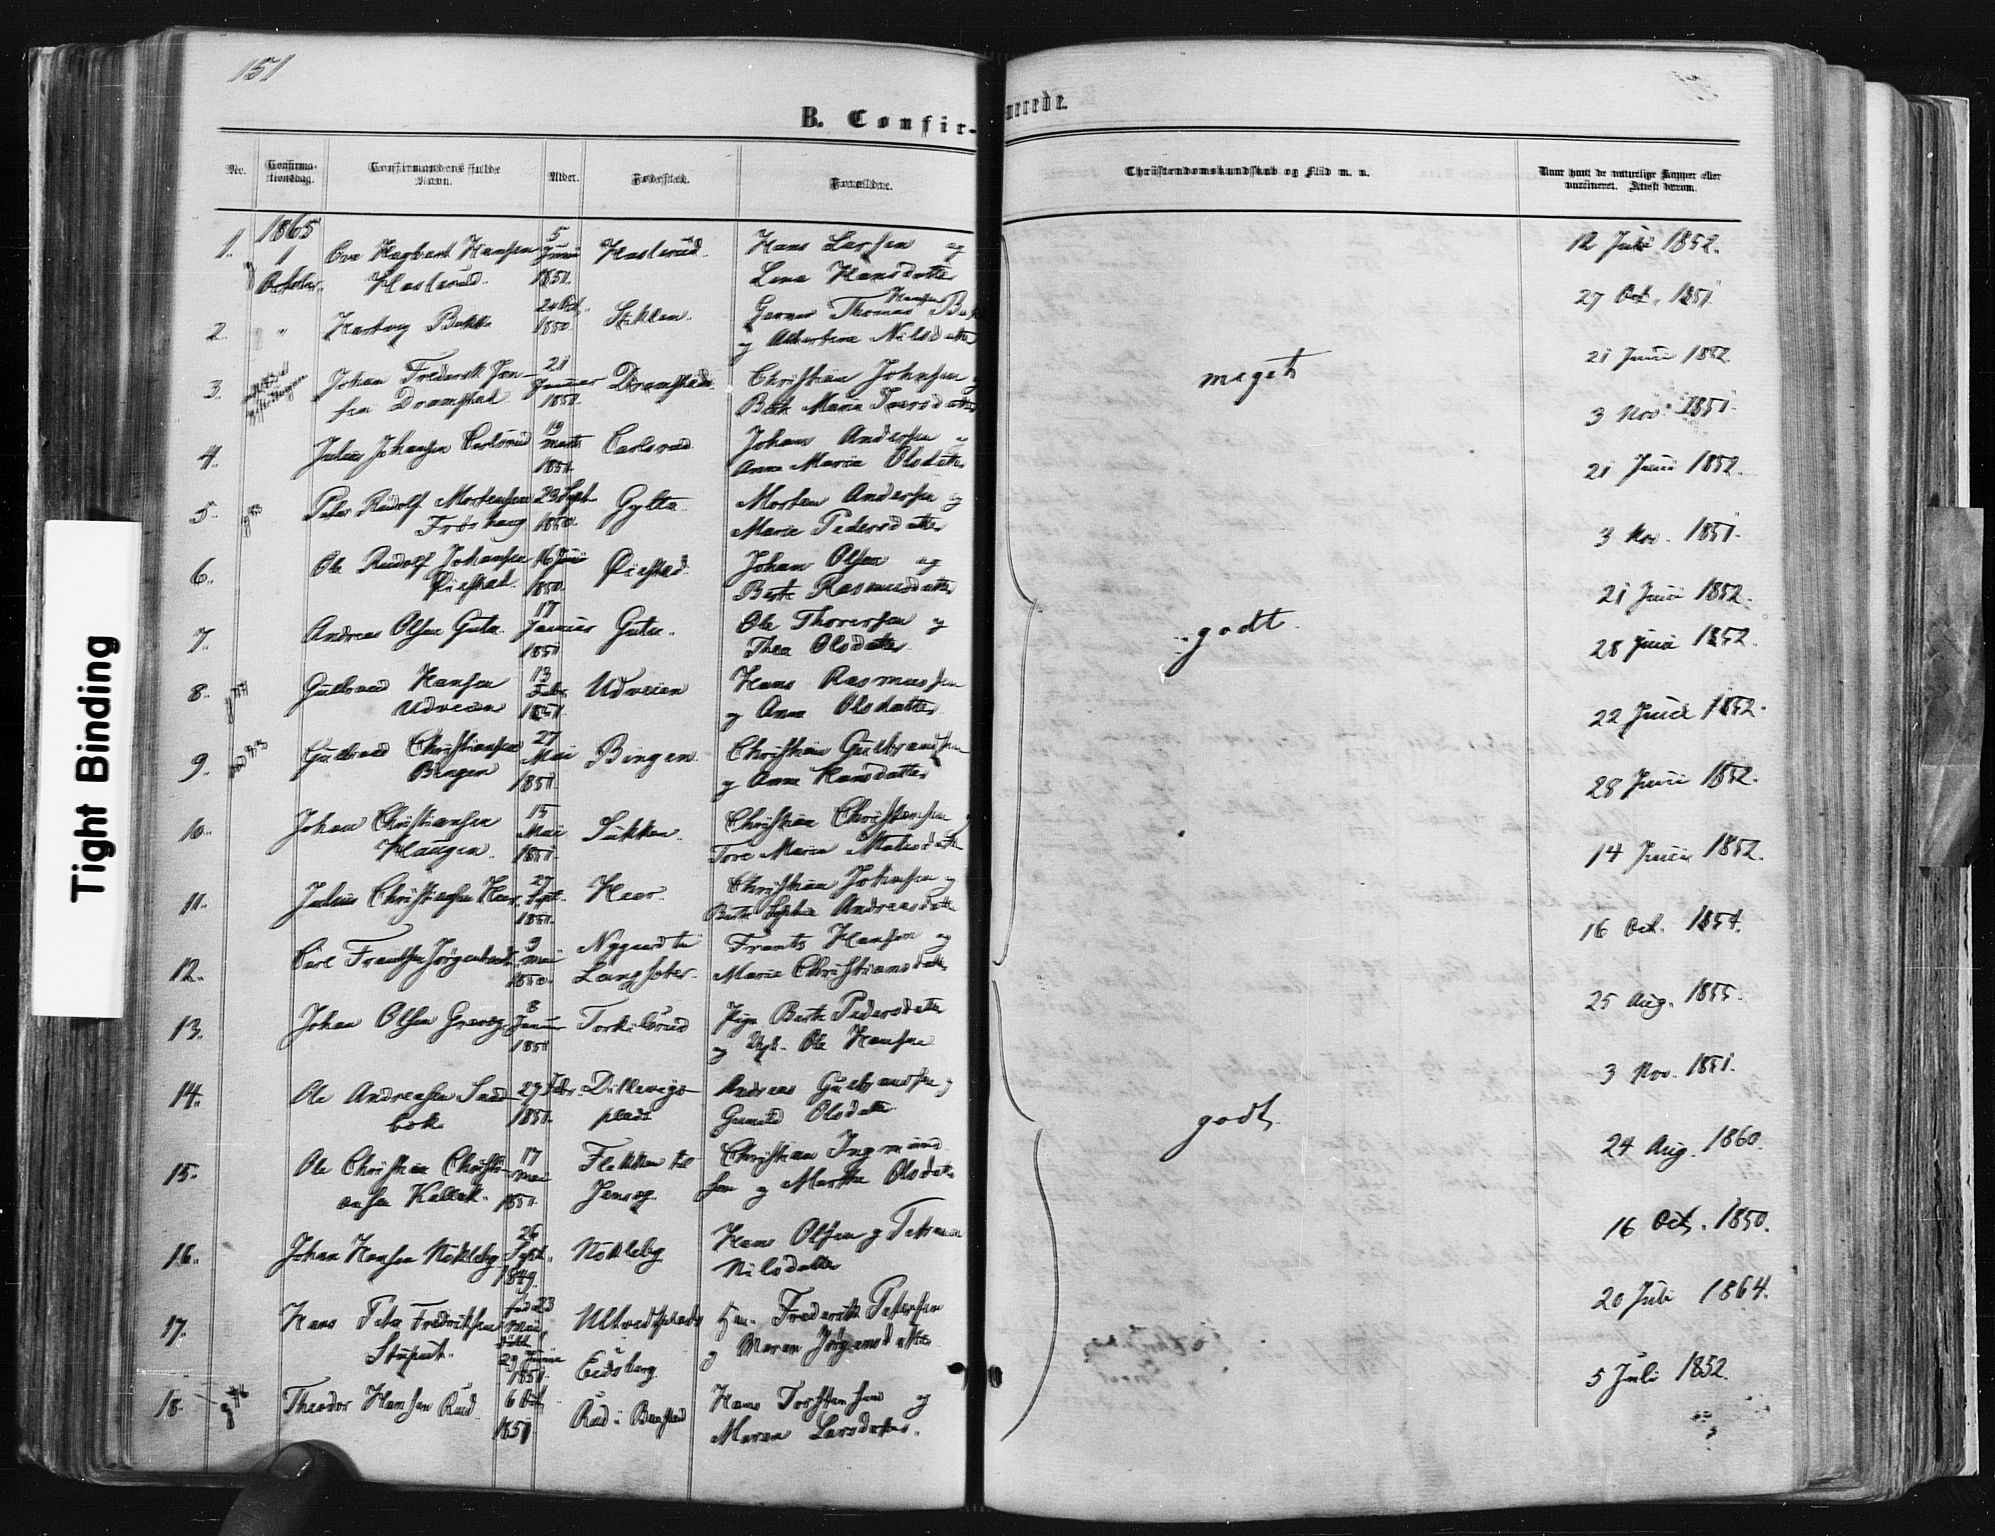 151
B. Confir-
merede.
No.
Confirma-
tionsdag.
Confirmandens fulde
Navn.
Alder.
Fødested.
Forældre.
Christendomskundskab og Flid m. m.
Naar havt de naturlige Kopper eller
vaccineret. Attest derom.
1865
1. 1 October. Hansen 5 Junii 1851. Haslerud. Hans Larsen og
Haslerud. Lena Hansdatter
12 Juli 1852.
2. " Hartvig Bakke 24 Oct. 1850. Thomas Hansen
og Albertine Nilsdatter
27 Oct. 1851.
3. Johan Frederik Jon-
sen Dramstad 21 Januar 1851. Dramstad Christian Johnsen
Maria Iversdatter
meget
21 Junii 1852.
4. Julius Johansen Carlsrud 19 Marts 1851. Carlsrud Johan Andersen og
Anne Maria Olsdatter
3 Nov. 1851.
5. Peter Rudolf Mortensen 23 Sept. 1850. Gylta Morten Andersen og
Marie Pedersdatter
21 Junii 1852.
6. Ole Rudolf Johansen 16 Junii 1850. Øiestad Johan Olsen og
Øiestad. Berte Rasmusdatter
3 Nov. 1851.
7. Andreas Olsen Guta 17 Januar 1851 Ole Thoresen og
Thea Olsdatter
godt
21 Junii 1852.
8. Gulbrand Hansen 13 Febr. 1851. Udveien Hans Rasmussen
Udveien og Anne Olsdatter
28 Junii 1852.
9. Gulbrand Christiansen 27 Mai 1851. Bingen Christian Gulbrandsen
Bingen og Anne Hansdatter
22 Junii 1852.
10. Johan Christiansen 15 Mai 1851. Christian Christensen
Haugen. Tore Maria
28 Junii 1852.
11. Julius Christiansen Heer 27 Sept. 1851. Heer. Christian Johnsen og
Berte Sophie Andreasdatter
14 Junii 1852.
12. Carl Frantsen 9 Mai 1850. Frants Hansen og
Langsæter. Marie Christiansdatter
16 Oct. 1854.
13. Johan Olsen 8 Januar 1851 Torkilsrud Pige Berte Pedersdatter
og Ole Hansen
25 Aug. 1855.
14. Ole Andreasen Sand-
bæk 27 Febr. 1851. Dillevigs-
plads Andreas Gulbrandsen og
Olsdatter
godt.
3 Nov. 1851.
15. Ole Christian Christi-
ansen 17 Mai 1851. Flekken til
Jensøg Christian Ingmund
sen og Marthe Olsdatter
24 Aug. 1860.
16. Johan Hansen Nökleby 26 Sept. 1849. Nökleby Hans Olsen og
Nilsdatter
16 Oct. 1850.
17. Hans Peter Fredriksen
født 23 Mai,
døbt
29 Junii 1851.
Eidsberg
Frederik Petersen
og Maren Jørgensdatter
20 Juli 1864.
18. Theodor Hansen Rud 6 Oct. 1851 Rud i Hans Torstensen og
Maren Larsdatter.
5 Juli 1852.
Tight Binding